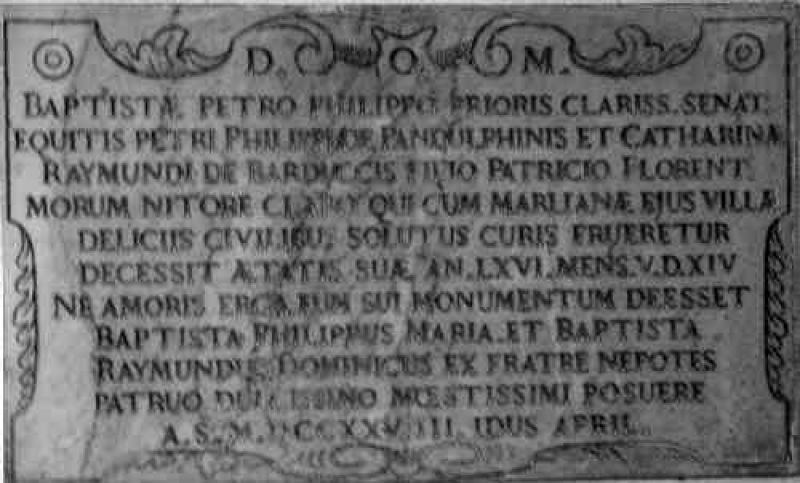 D. O. M.
BAPTISTÆ PETRO PHILIPPO PRIORIS CLARISS. SENAT.
EQUITIS PETRI PHILIPPI DE PANDULPHINIS ET CATHARINA
RAYMUNDI DE BARDUCCIS FILIO PATRICIO FLORENT.
MORUM NITORE CLARO QUI CUM MARLIANÆ EJUS VILLÆ
DELICIIS CIVILIBUS SOLUTUS CURIS FRUERETUR
DECESSIT ÆTATIS SUÆ AN. LXVI. MENS. V. D. XIV
NE AMORIS ERGA EUM SUI MONUMENTUM DEESSET
BAPTISTA PHILIPPUS MARIA ET BAPTISTA
RAYMUNDUS DOMINICUS EX FRATRE NEPOTES
PATRUO DULCISSIMO MŒSTISSIMI POSUERE
A. S. IDUS APRIL.